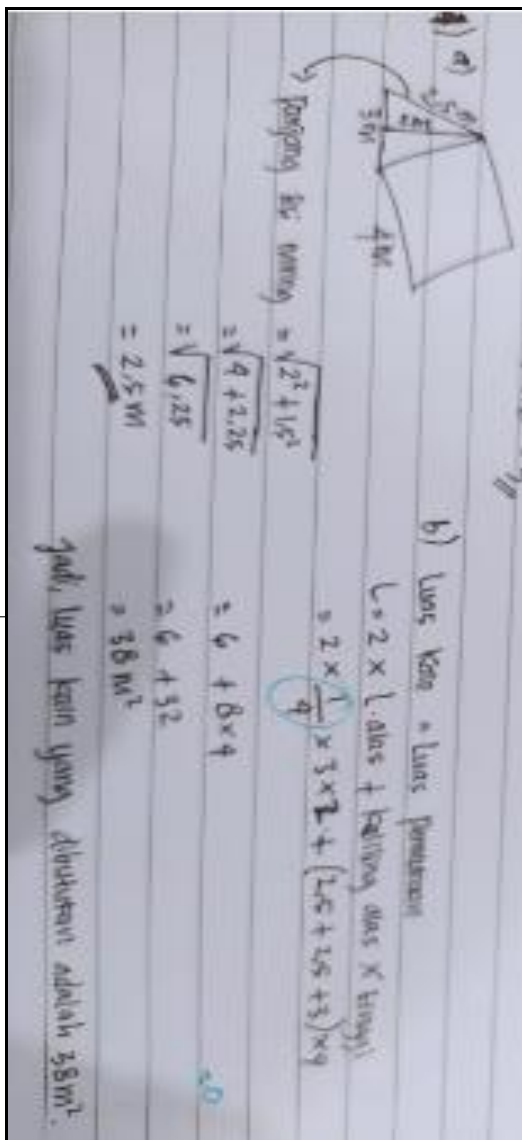 a)
2,5 m
2m
3m
4m
Panjang sisi miring = √2² + 1,5²
= √4 + 2,25
= √6,25
= 2,5 m
b) Luas kain = Luas permukaan
L = 2 × L.alas + keliling alas × tinggi
= 2 × 1/4 × 3 × 2 + (2,5 + 2,5 + 3) × 4
= 6 + 8 × 4
= 6 + 32
= 38 m²
Jadi, luas kain yang dibutuhkan adalah 38 m².